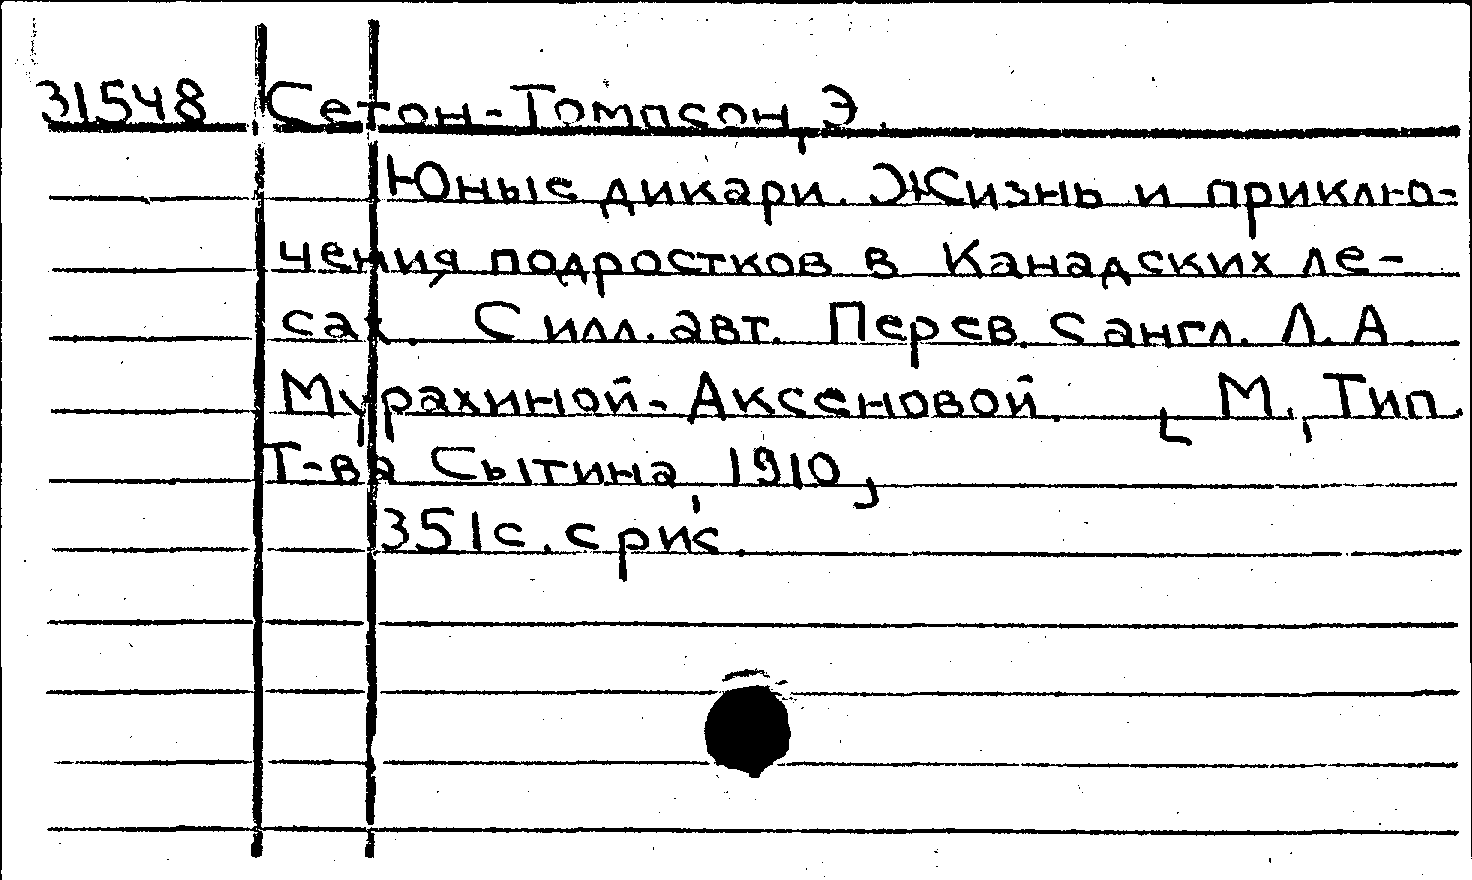 31548 Сетон-Томпсон, Э.
Юные дикари. Жизнь и приклю-
чения подростков в Канадских ле-
сах. С илл. авт. Перев. с англ. Л. А.
Мурахиной-Аксеновой. [М., Тип.
Т-ва Сытина, 1910]
351с. с рис.